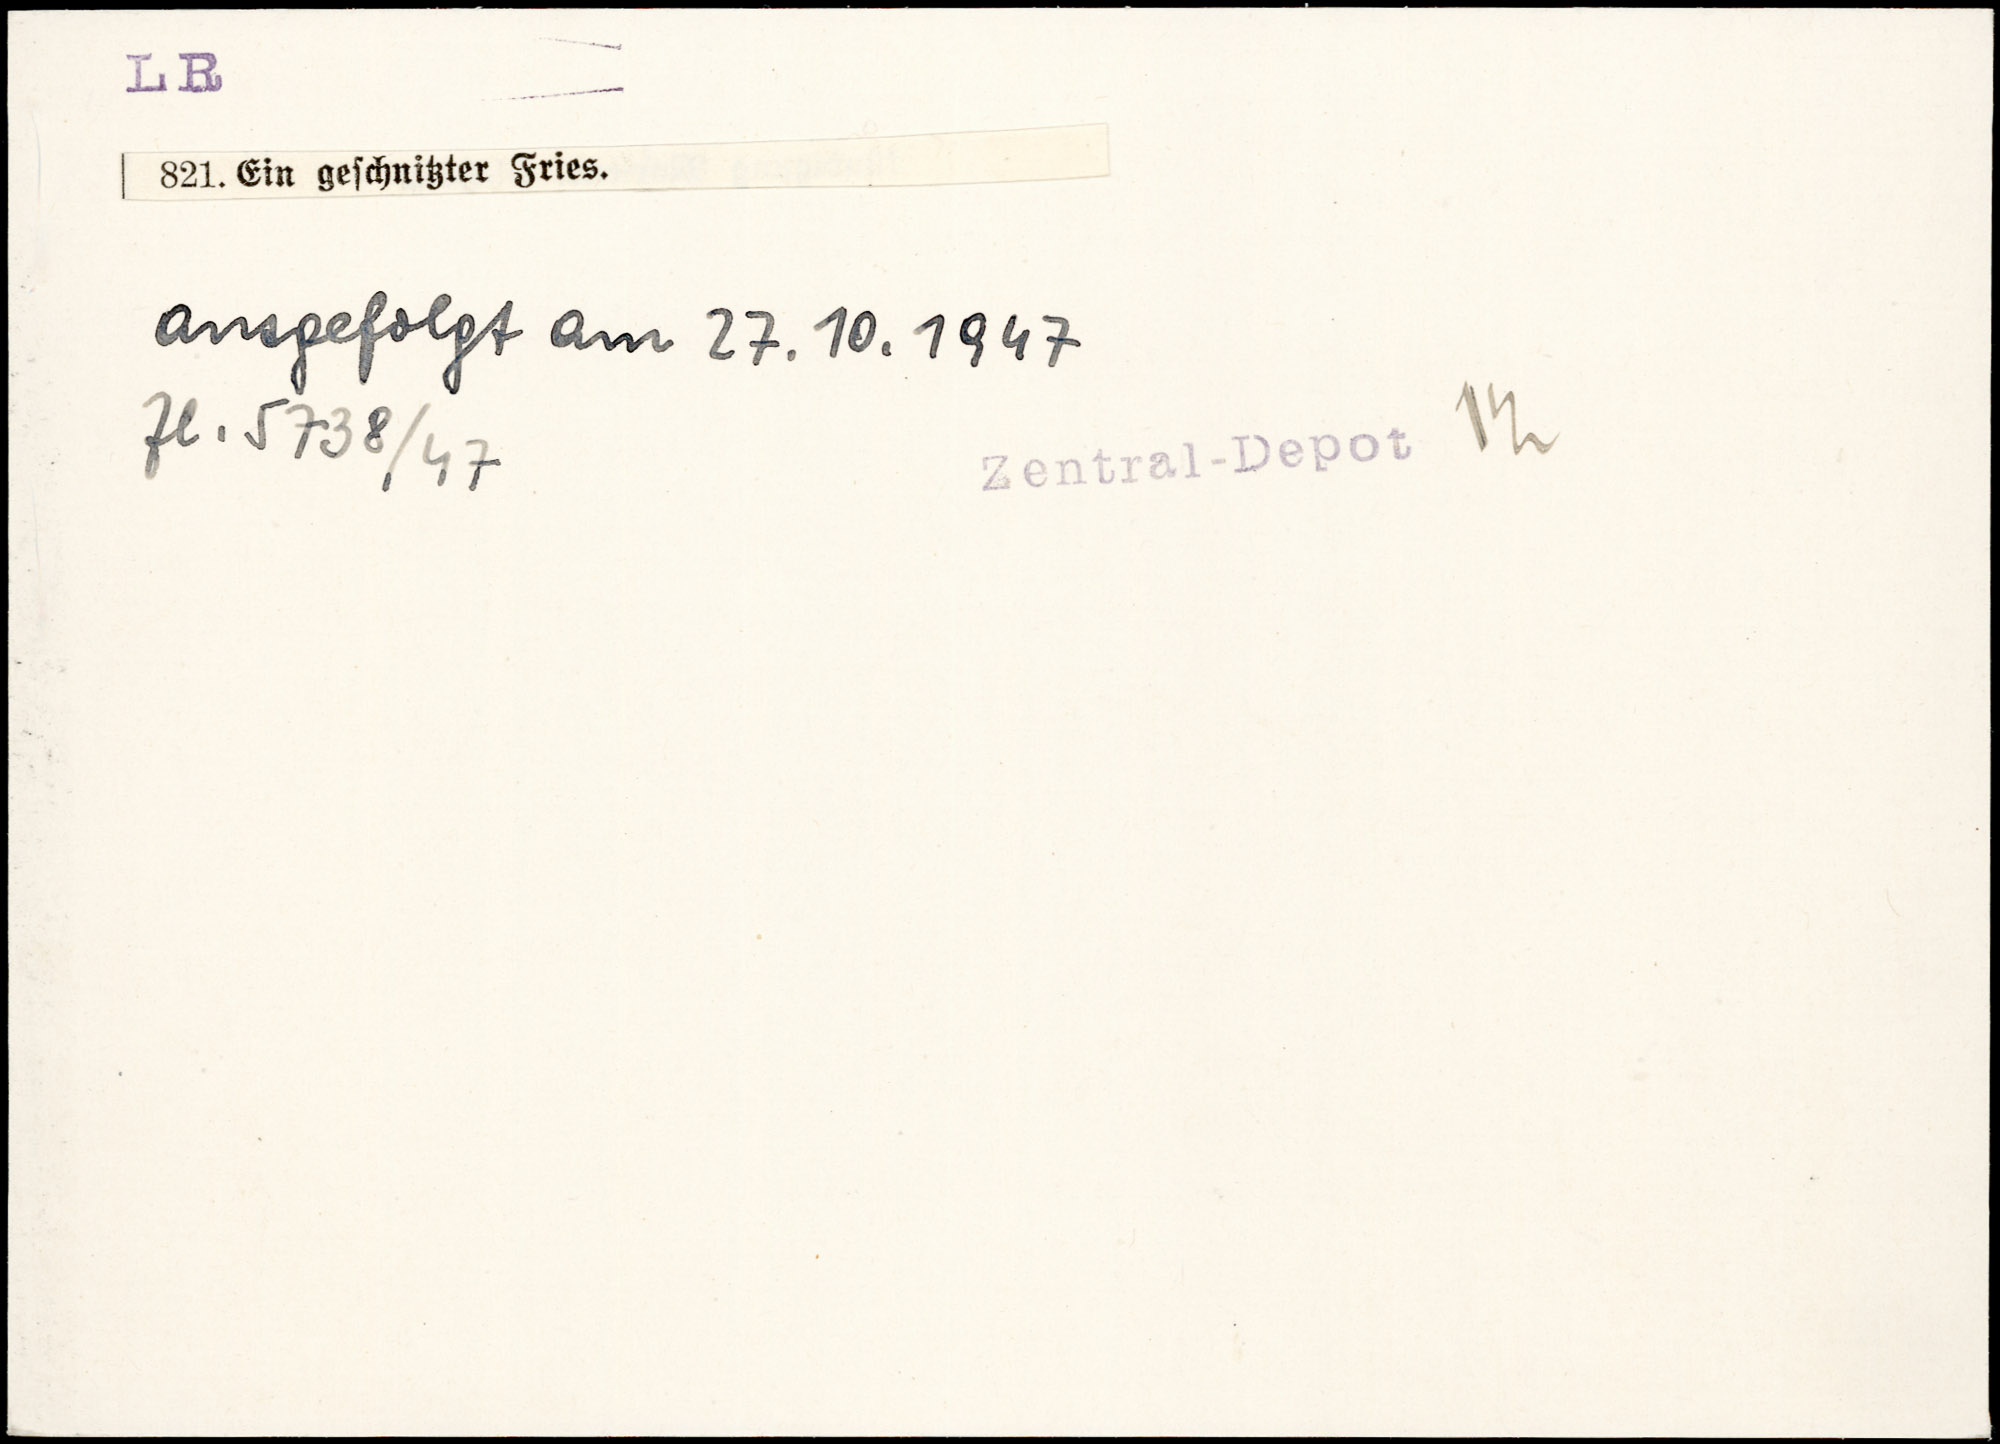 LR
821. Ein geschnitzter Fries.
ausgefolgt am 27. 10. 1947
Zl. 5738/47
Zentral-Depot